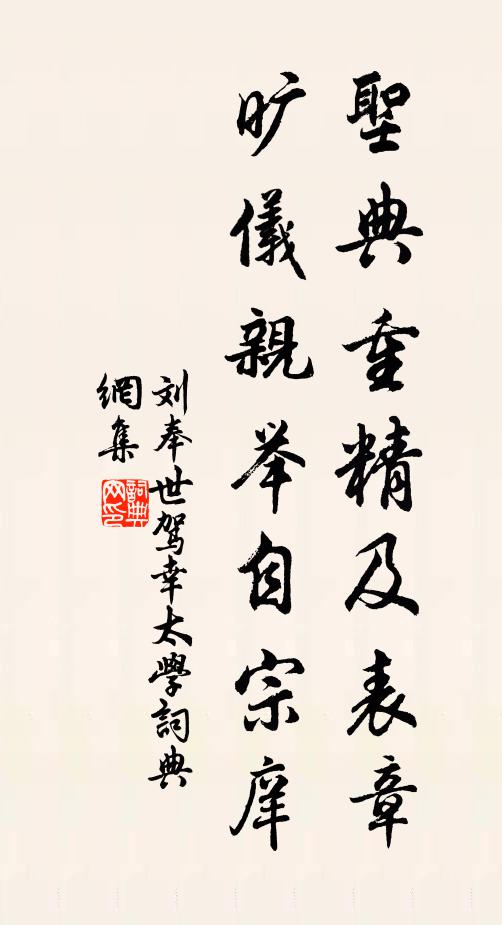 聖典重精及表章
旷儀親举自宗庠
刘奉世驾幸太學詞典
網集
詞典
网印